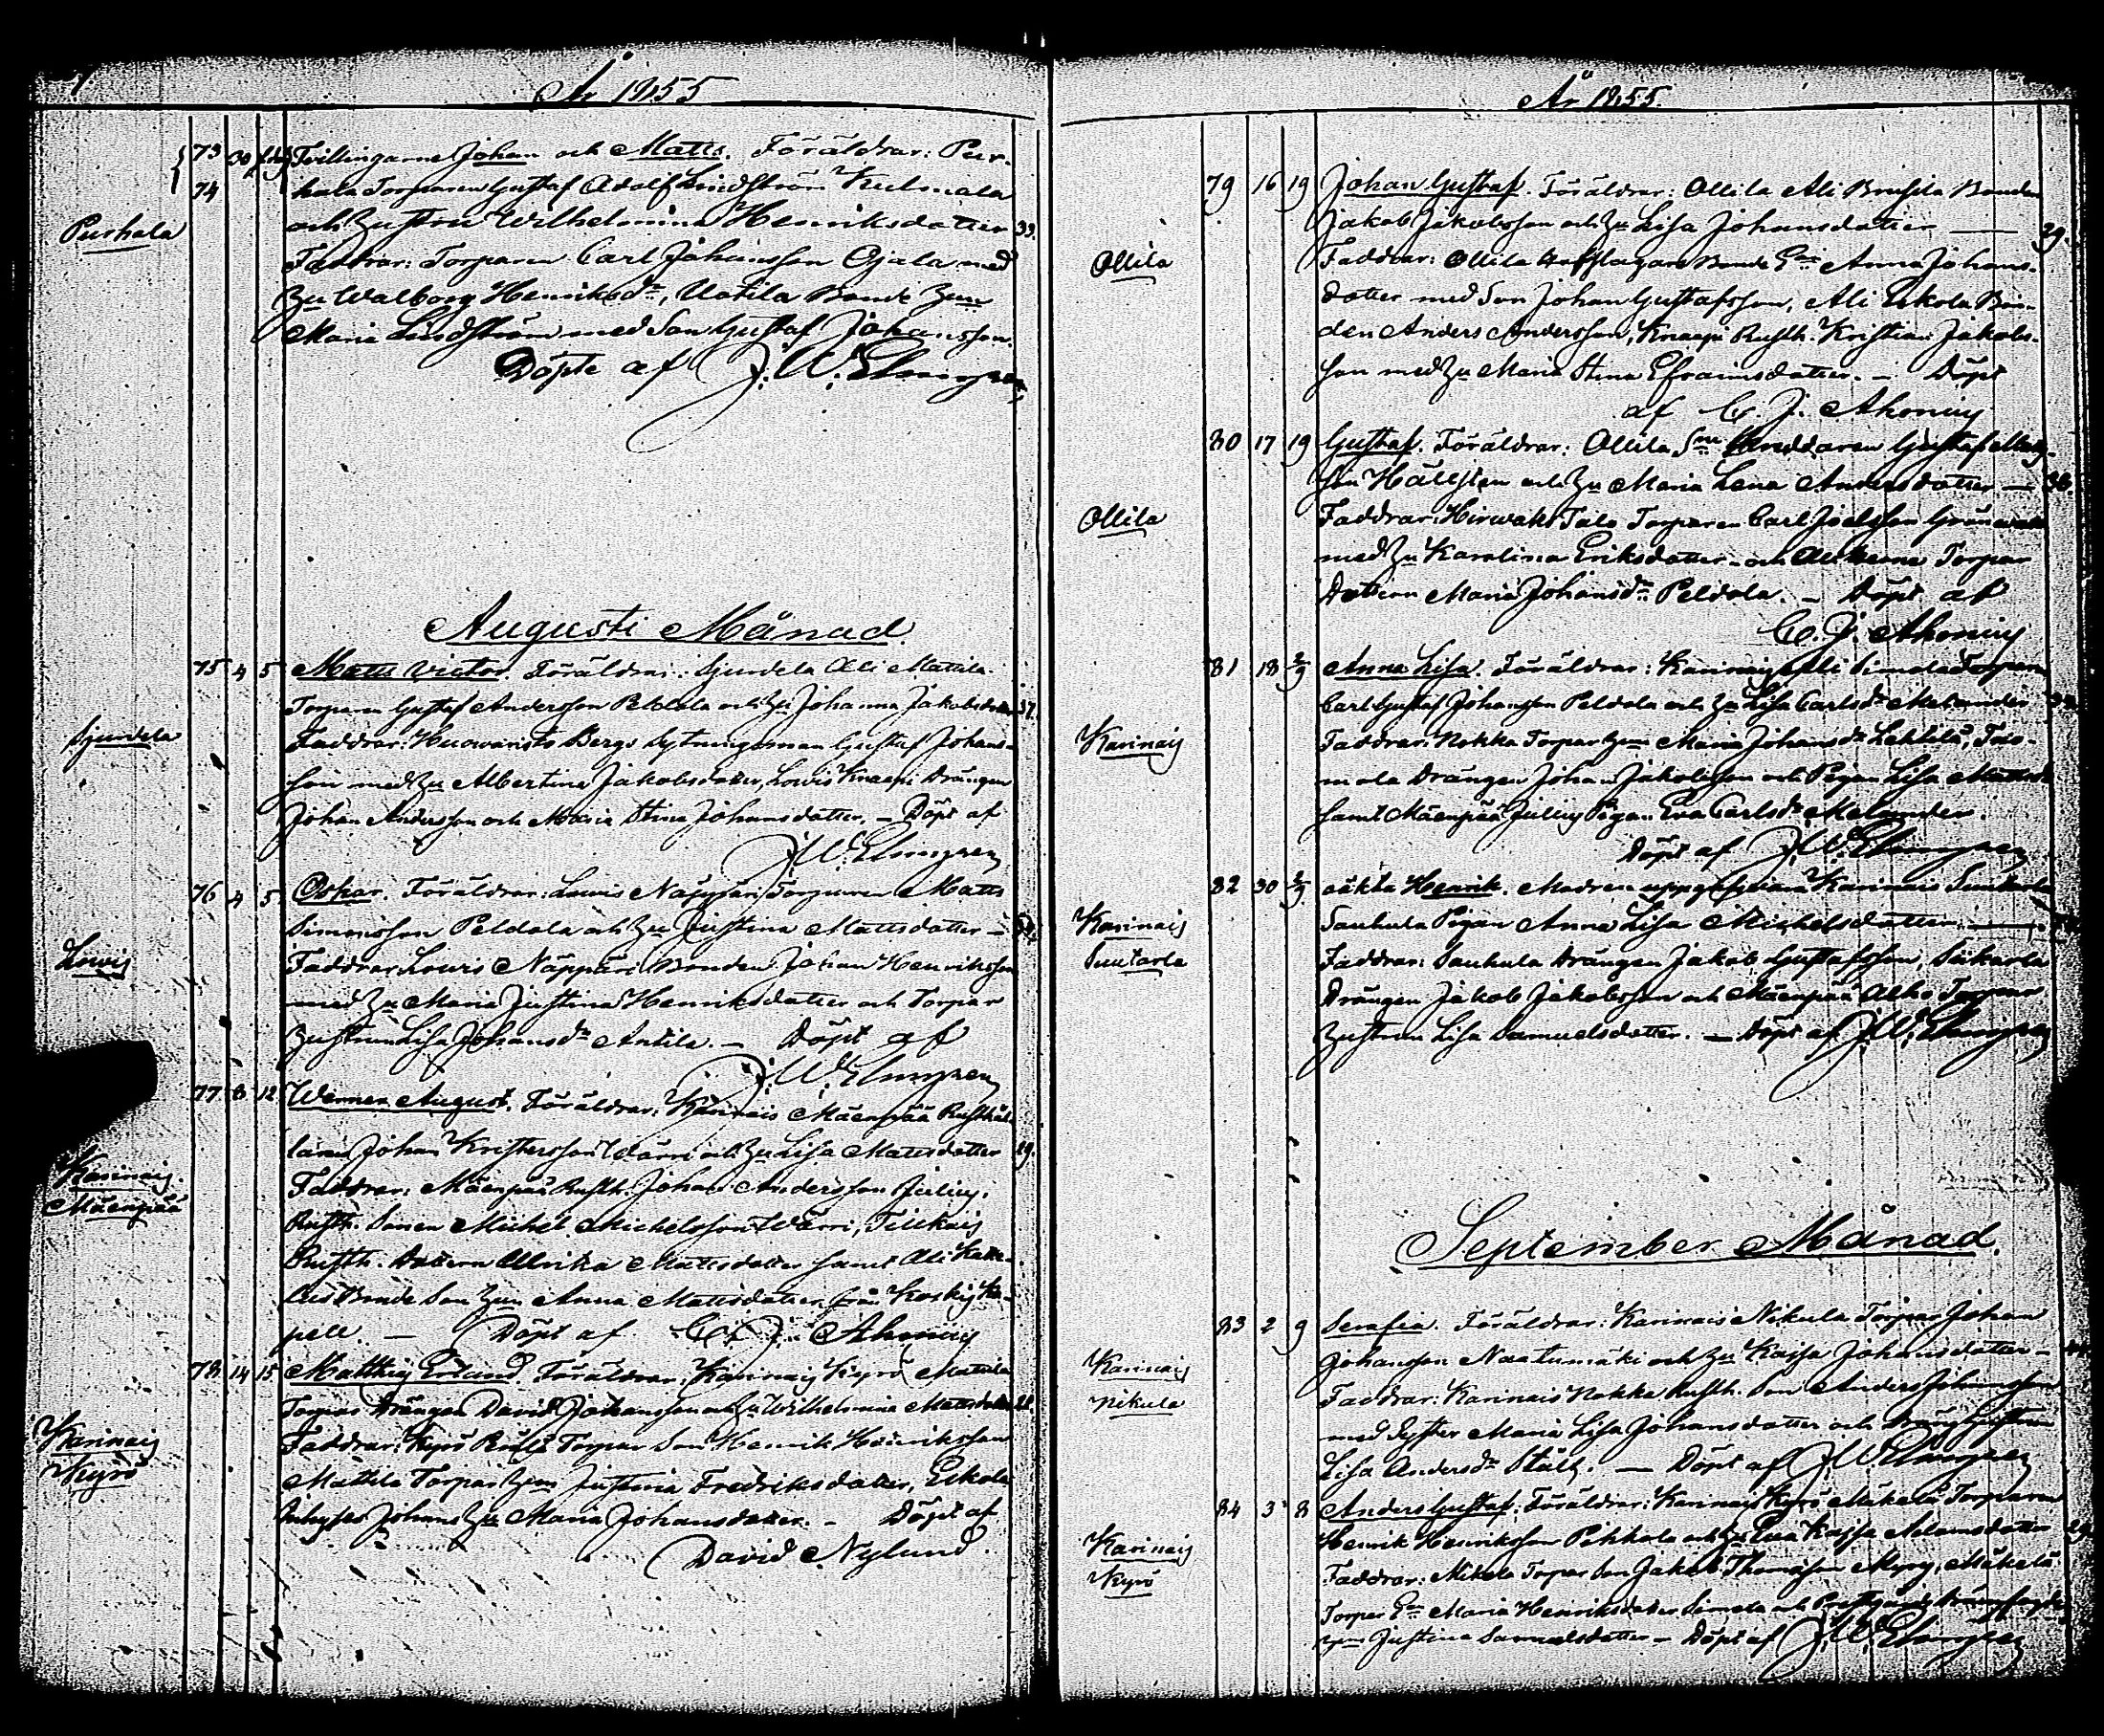 År 1855
73 30 Tvillingarne Johan och Matts. Föräldrar: Pur-
74 hala Torparen Gustaf Adolf Lindström Kulmala
Purhala
och Hustru Wilhelmina Henriksdotter 33.
Faddrar: Torparen Carl Johansson Ojala med
Hu Walborg Henriksdr, Uotila Bonde
Maria Lindström med Son Gustaf Johansson.
Döpte af J. W. Elmgren
Augusti Månad
75 4 5 Matts Victor. Föräldrar: Ali Mattila
Torparen Gustaf Andersson Peldola och Hu Johanna Jakobsdotter 37.
Faddrar: Bergs Sytningsman Gustaf Johans-
son med Hu Albertina Jakobsdotter, Lowis Knaapi Drängen
Johan Andersson och Maria Stina Johansdotter. – Döpt af
J. W. Elmgren
76 4 5 Oskar. Föräldrar: Lowis Näppäri Torparen Matts
Simonsson Peldola och Hu Justina Mattsdotter –
Lowis
Faddrar: Lowis Näppäri Bonden Johan Henriksson
med Hu Maria Justina Henriksdotter och Torpar
Hustrun Lisa Johansdr Antila. – Döpt af
J. W. Elmgren
77 8 12 Werner August. Föräldrar: Karinais Mäenpää Rusthål-
laren Johan Kristersson Wärri och Hu Lisa Mattsdotter 29.
Karinais
Mäenpää
Faddrar: Mäenpää Rusth. Johan Andersson Julius,
Rusth. Sonen Michel Michelsson Wärri, Tiilikais
Rusth. Dottern Ulrika Mattsdotter samt Ali
Bonde Son Anna Mattsdotter från Koskis Ka-
pell. – Döpt af C. J. Ahonius
78 14 15 Matthias Erland. Föräldrar: Karinais Kyrö Mattila
Torpar Drängen David Johansson och Hu Wilhelmina Mattsdotter 28.
Karinais
Kyrö
Faddrar: Kyrö Torpar Son Henrik Henriksson
Mattila Torpar Justina Fredriksdotter, Eskola
Inhyses Johans Hu Maria Johansdotter. – Döpt af
David Nylund.
År 1855.
79 16 19 Johan Gustaf. Föräldrar: Ollila Ali Brusila Bonden
Jakob Jakobsson och Hu Lisa Johansdotter — 39.
Ollila
Faddrar: Ollila Bonde Anna Johans-
dotter med Son Johan Gustafsson, Ali Eskola Bon-
den Anders Andersson, Knaapi Rusth. Kristian Jakobs-
son med Hu Maria Stina Efraimsdotter. – Döpt
af C. J. Ahonius
80 17 19 Gustaf. Föräldrar: Ollila Gustaf Matts-
son Hällsten och Hu Maria Lena Andersdotter – 36.
Ollila
Faddrar: Talo Torparen Carl Joelsson
med Hu Karolina Eriksdotter och Torpar
Dottern Maria Johansdr Peldola. – Döpt af
C. J. Ahonius
81 18 2/9 Anna Lisa. Föräldrar: Karinais Ali Simola Torparen
Carl Gustaf Johansson Peldola och Hu Lisa Carlsdr Melander
Karinais
Faddrar: Nokka Torpar Maria Johansdr
Drängen Johan Jakobsson och Pigan Lisa Mattsdr
samt Mäenpää Julius Pigan Eva Carlsdr Melander.
Döpt af J. W. Elmgren
82 30 2/9 oäkta Henrik. Modren uppgifven Karinais
Sauhula Pigan Anna Lisa Michelsdotter. —
Karinais
Suutarla
Faddrar: Sauhula Drängen Jakob Gustafsson,
Drängen Jakob Jakobsson och Mäenpää Alho Torpare
Hustrun Lisa Samuelsdotter. – Döpt af J. W. Elmgren
September Månad.
83 2 9 Serafia. Föräldrar: Karinais Nikula Torpar Johan
Johansson Naatumäki och Hu Kajsa Johansdotter –
Karinais
Nikula
Faddrar: Karinais Nokka Rusth. Son Anders Johansson
med Syster Maria Lisa Johansdotter och
Lisa Andersdr Stålt. — Döpt af J. W. Elmgren
84 3 8 Anders Gustaf. Föräldrar: Karinais Kyrö Mäkelä Torparen
Henrik Henriksson Pihkola och Hu Eva Kajsa Adamsdotter 29
Karinais
Kyrö
Faddrar: Torpar Son Jakob Thomasson Myry, Mäkelä
Torpar Maria Henriksdotter och
Justina Samuelsdotter – Döpt af J. W. Elmgren